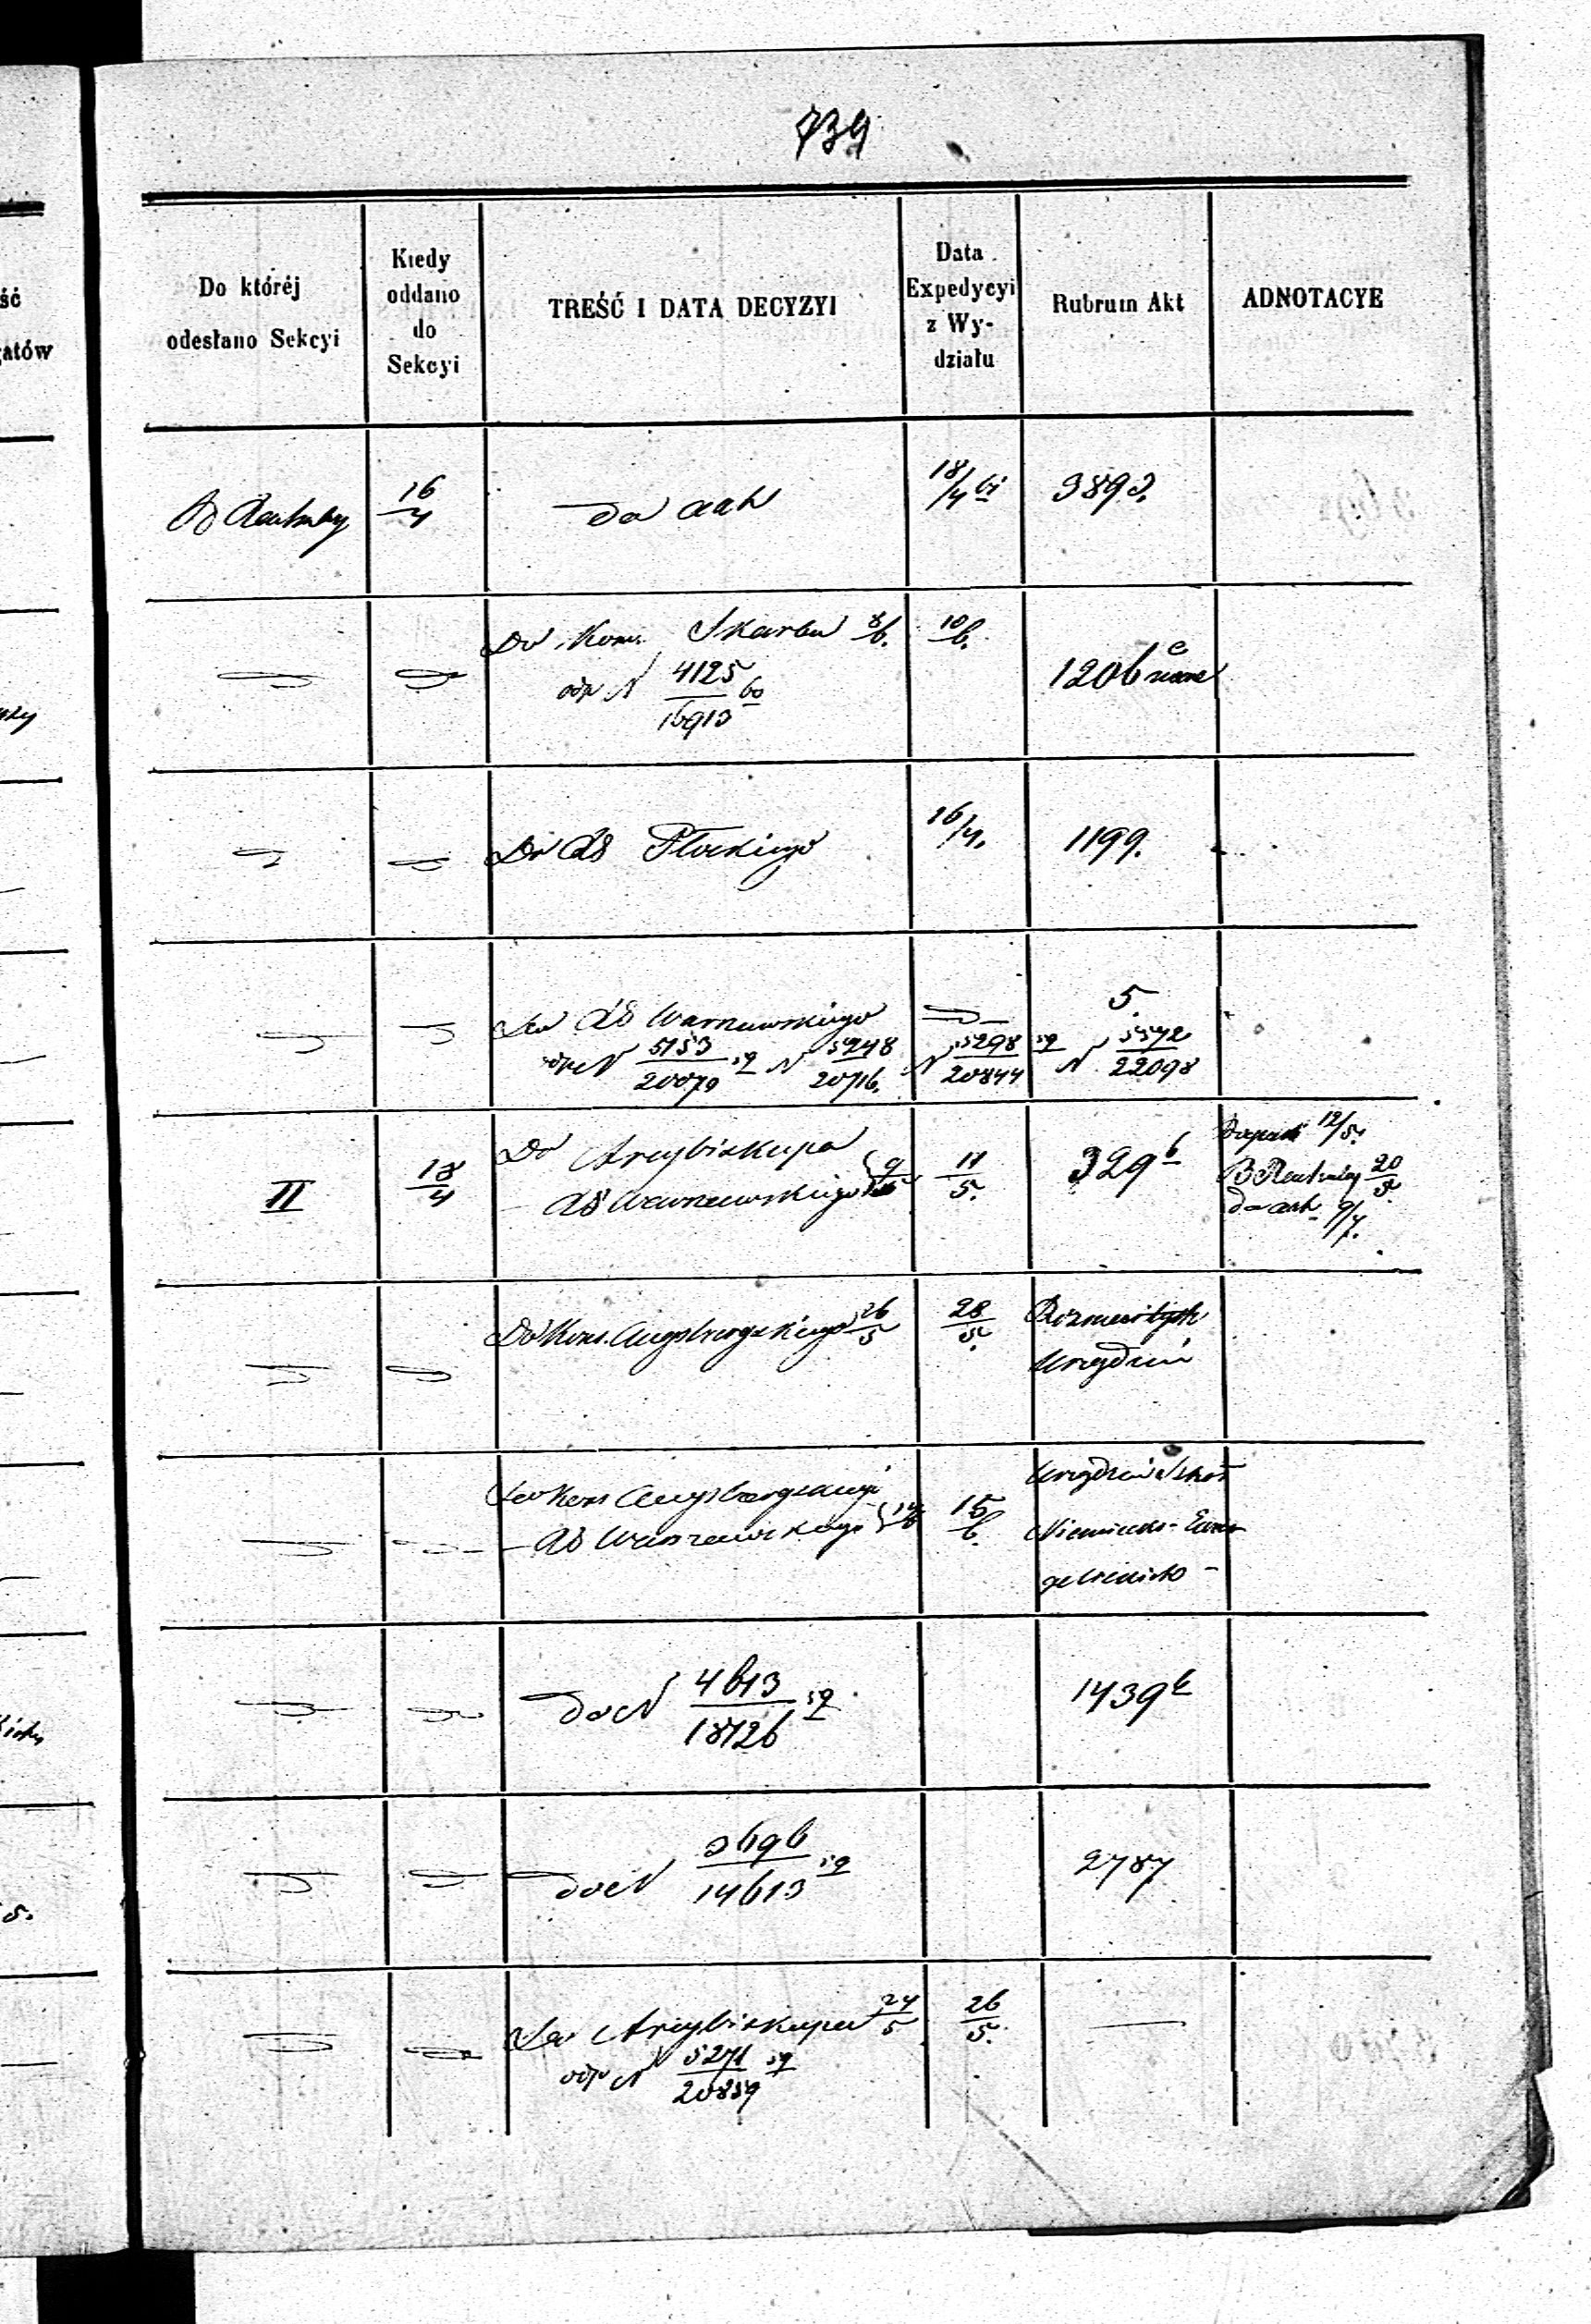 739
ść
gatów
Do któréj
odesłano Sekcyi
Kiedy
oddano
do
Sekcyi
TREŚĆ I DATA DECYZYI
Data
Expedycyi
z Wy-
działu
Rubrum Akt
ADNOTACYE
16/4
do akt
18/4
3893.
Do Kom. Skarbu 8/6.
10/6.
odp N 4125/16913
1206
Do AS Płockiego
16/4.
1199.
5
Do AS Warszawskiego
odp N 5153/20079 N 5248/20716. N 5298/20844 N 5572/22098
II
18/4
Do Arcybiskupa
AS Warszawskiego 9/5
11/5.
329 b
12/5.
20/5
do akt 9/7.
Do Kons. Augsburgskiego 26/5
28/5.
Rozmaitych
Urzędzeń
Do Kons Augsburgskiego
AS Warszawskiego
15/6.
Urządzeń Szkół
Niemiecko-Ewan
gelickich
do N 4613/18726
1439
do N 3696/14613
2787
Do Arcybiskupa 24/5
26/5.
odp N 5271/20859